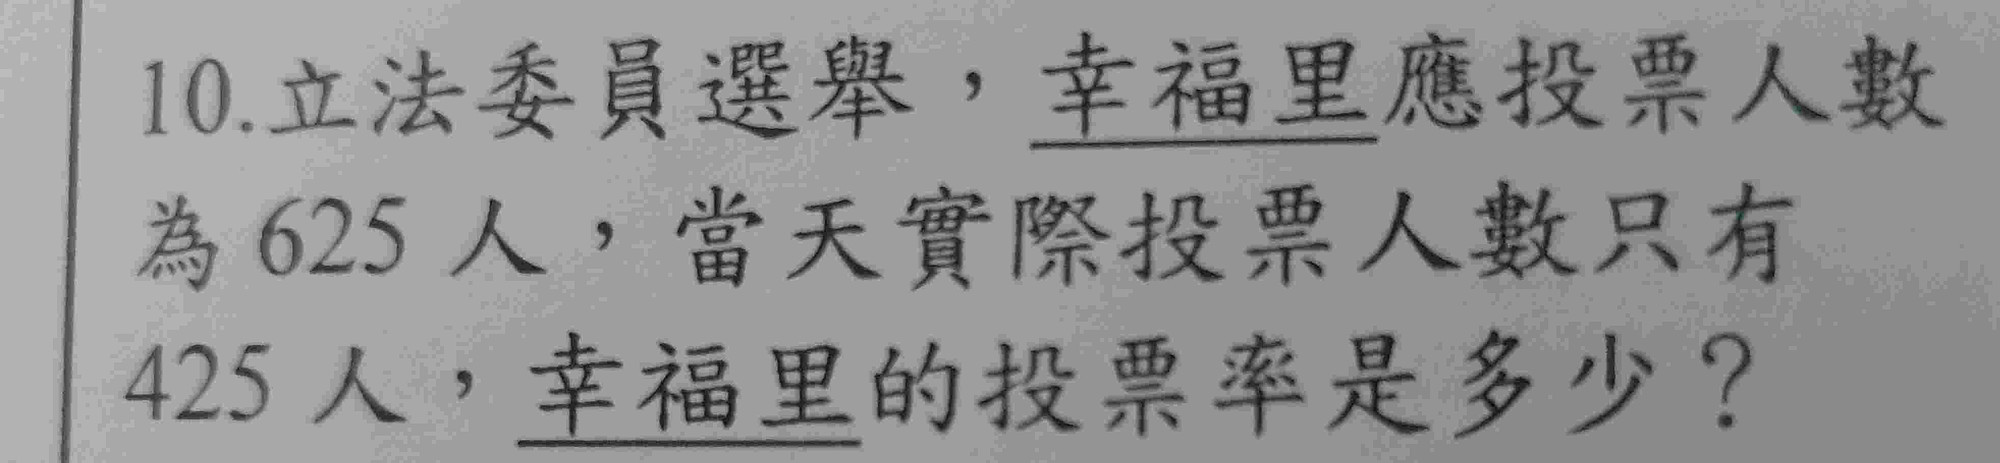 10.立法委員選舉，幸福里應投票人數
為 625 人，當天實際投票人數只有
425 人，幸福里的投票率是多少？